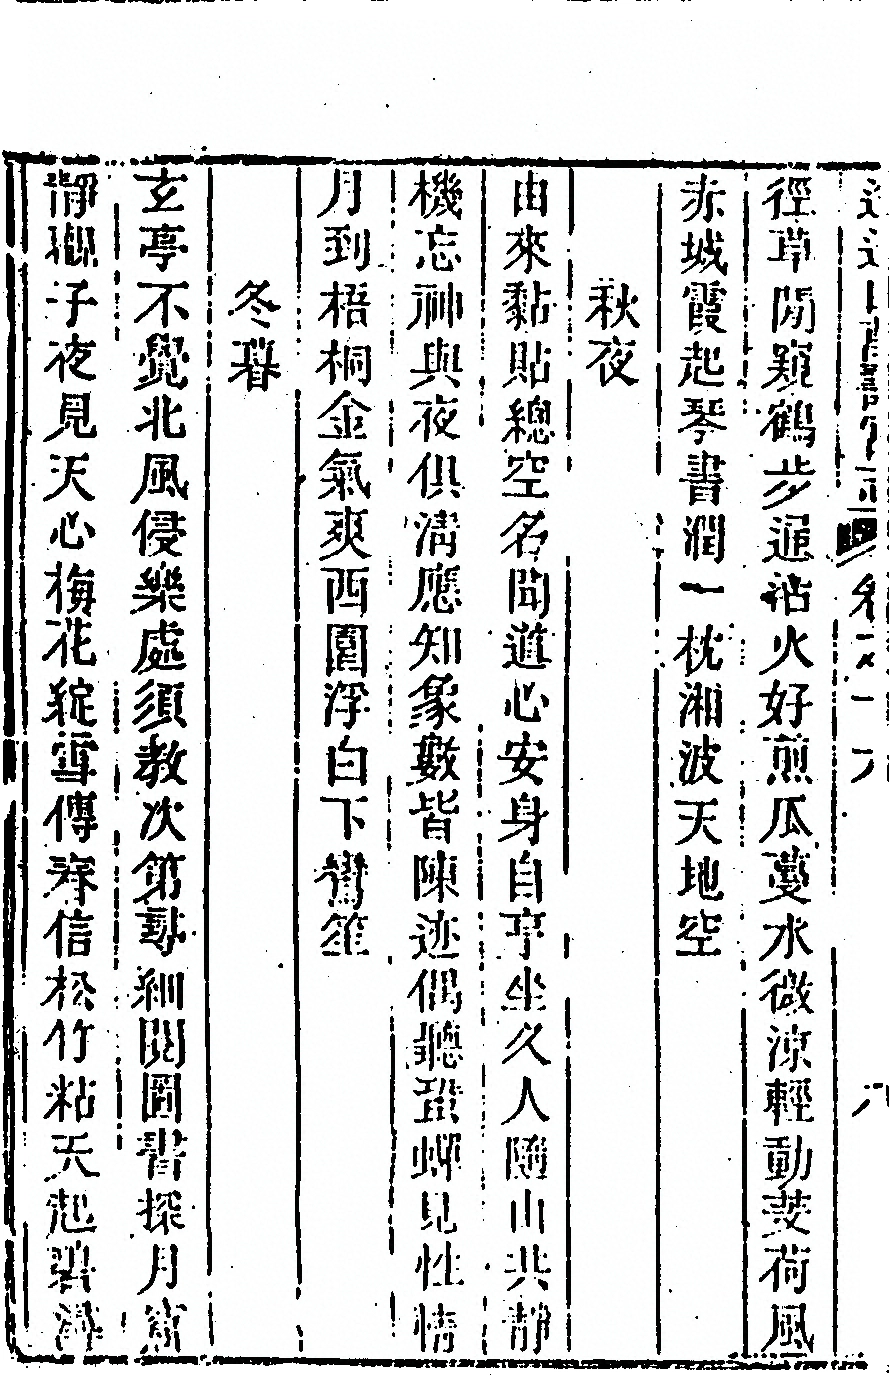 徑草閒窺鶴步遲沾火好煎瓜蔓水微涼輕動芰荷風
赤城霞起琴書潤一枕湘波天地空
秋夜
由來黏貼總空名聞道心安身自亨坐久人隨山共靜
機忘神與夜俱清應知象數皆陳迹偶聽蛩蟬見性情
月到梧桐金氣爽西園浮白下鸞笙
冬暮
玄亭不覺北風侵樂處須教次第尋細閱圖書探月窟
靜觀子夜見天心梅花綻雪傳春信松竹粘天起碧潯